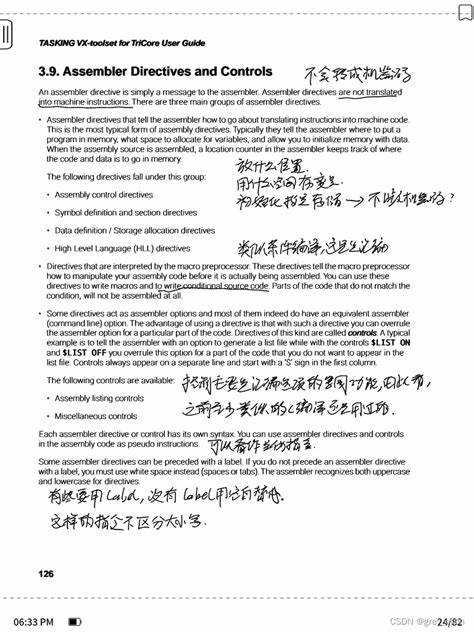 TASKING VX-toolset for TriCore User Guide
3.9. Assembler Directives and Controls
不会转成机器码
An assembler directive is simply a message to the assembler. Assembler directives are not translated
into machine instructions. There are three main groups of assembler directives.
• Assembler directives that tell the assembler how to go about translating instructions into machine code.
This is the most typical form of assembly directives. Typically they tell the assembler where to put a
program in memory, what space to allocate for variables, and allow you to initialize memory with data.
When the assembly source is assembled, a location counter in the assembler keeps track of where
the code and data is to go in memory.
放什么位置.
The following directives fall under this group:
用什么空间存变量.
• Assembly control directives
初始化指定存储 → 不

机器码?
• Symbol definition and section directives
• Data definition / Storage allocation directives
• High Level Language (HLL) directives
类似条件编译
• Directives that are interpreted by the macro preprocessor. These directives tell the macro preprocessor
how to manipulate your assembly code before it is actually being assembled. You can use these
directives to write macros and to write conditional source code. Parts of the code that do not match the
condition, will not be assembled at all.
• Some directives act as assembler options and most of them indeed do have an equivalent assembler
(command line) option. The advantage of using a directive is that with such a directive you can overrule
the assembler option for a particular part of the code. Directives of this kind are called controls. A typical
example is to tell the assembler with an option to generate a list file while with the controls $LIST ON
and $LIST OFF you overrule this option for a part of the code that you do not want to appear in the
list file. Controls always appear on a separate line and start with a '$' sign in the first column.
The following controls are available:
• Assembly listing controls
• Miscellaneous controls
Each assembler directive or control has its own syntax. You can use assembler directives and controls
in the assembly code as pseudo instructions.
可以看作是伪指令.
Some assembler directives can be preceded with a label. If you do not precede an assembler directive
with a label, you must use white space instead (spaces or tabs). The assembler recognizes both uppercase
and lowercase for directives.
有些要用 label, 没有 label 用空白替代.
这样的指令不区分大小写.
126
06:33 PM
24/82